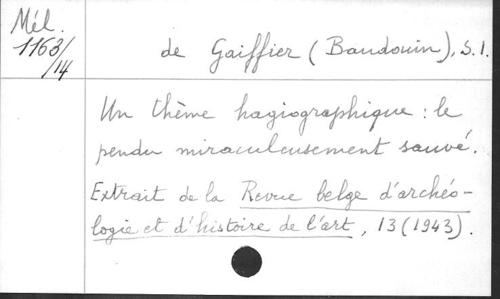 Mél.
1163/14
de Gaiffier (Baudouin), S.I.
Un thème hagiographique : le
pendu miraculeusement sauvé.
Extrait de la Revue belge d'archéo-
logie et d'histoire de l'art, 13 (1943).